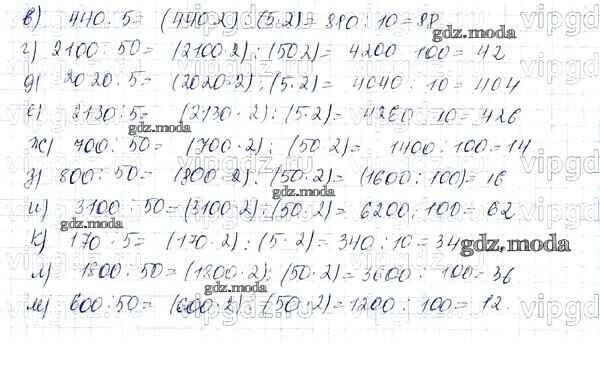 в) 440:5= (440·2):(5·2)= 880:10=88
г) 2100:50= (2100·2):(50·2)= 4200:100=42
д) 2020:5= (2020·2):(5·2)= 4040:10=404
е) 2130:5= (2130·2):(5·2)= 4260:10=426
ж) 700:50= (700·2):(50·2)= 1400:100=14
з) 800:50= (800·2):(50·2)= (1600:100)=16
и) 3100:50=(3100·2):(50·2)= 6200:100=62
к) 170:5= (170·2):(5·2)=340:10=34
л) 1800:50=(1800·2):(50·2)=3600:100=36
м) 600:50= (600·2):(50·2)=1200:100=12.
gdz.moda
gdz.moda
gdz.moda
gdz.moda
gdz.moda
gdz.moda